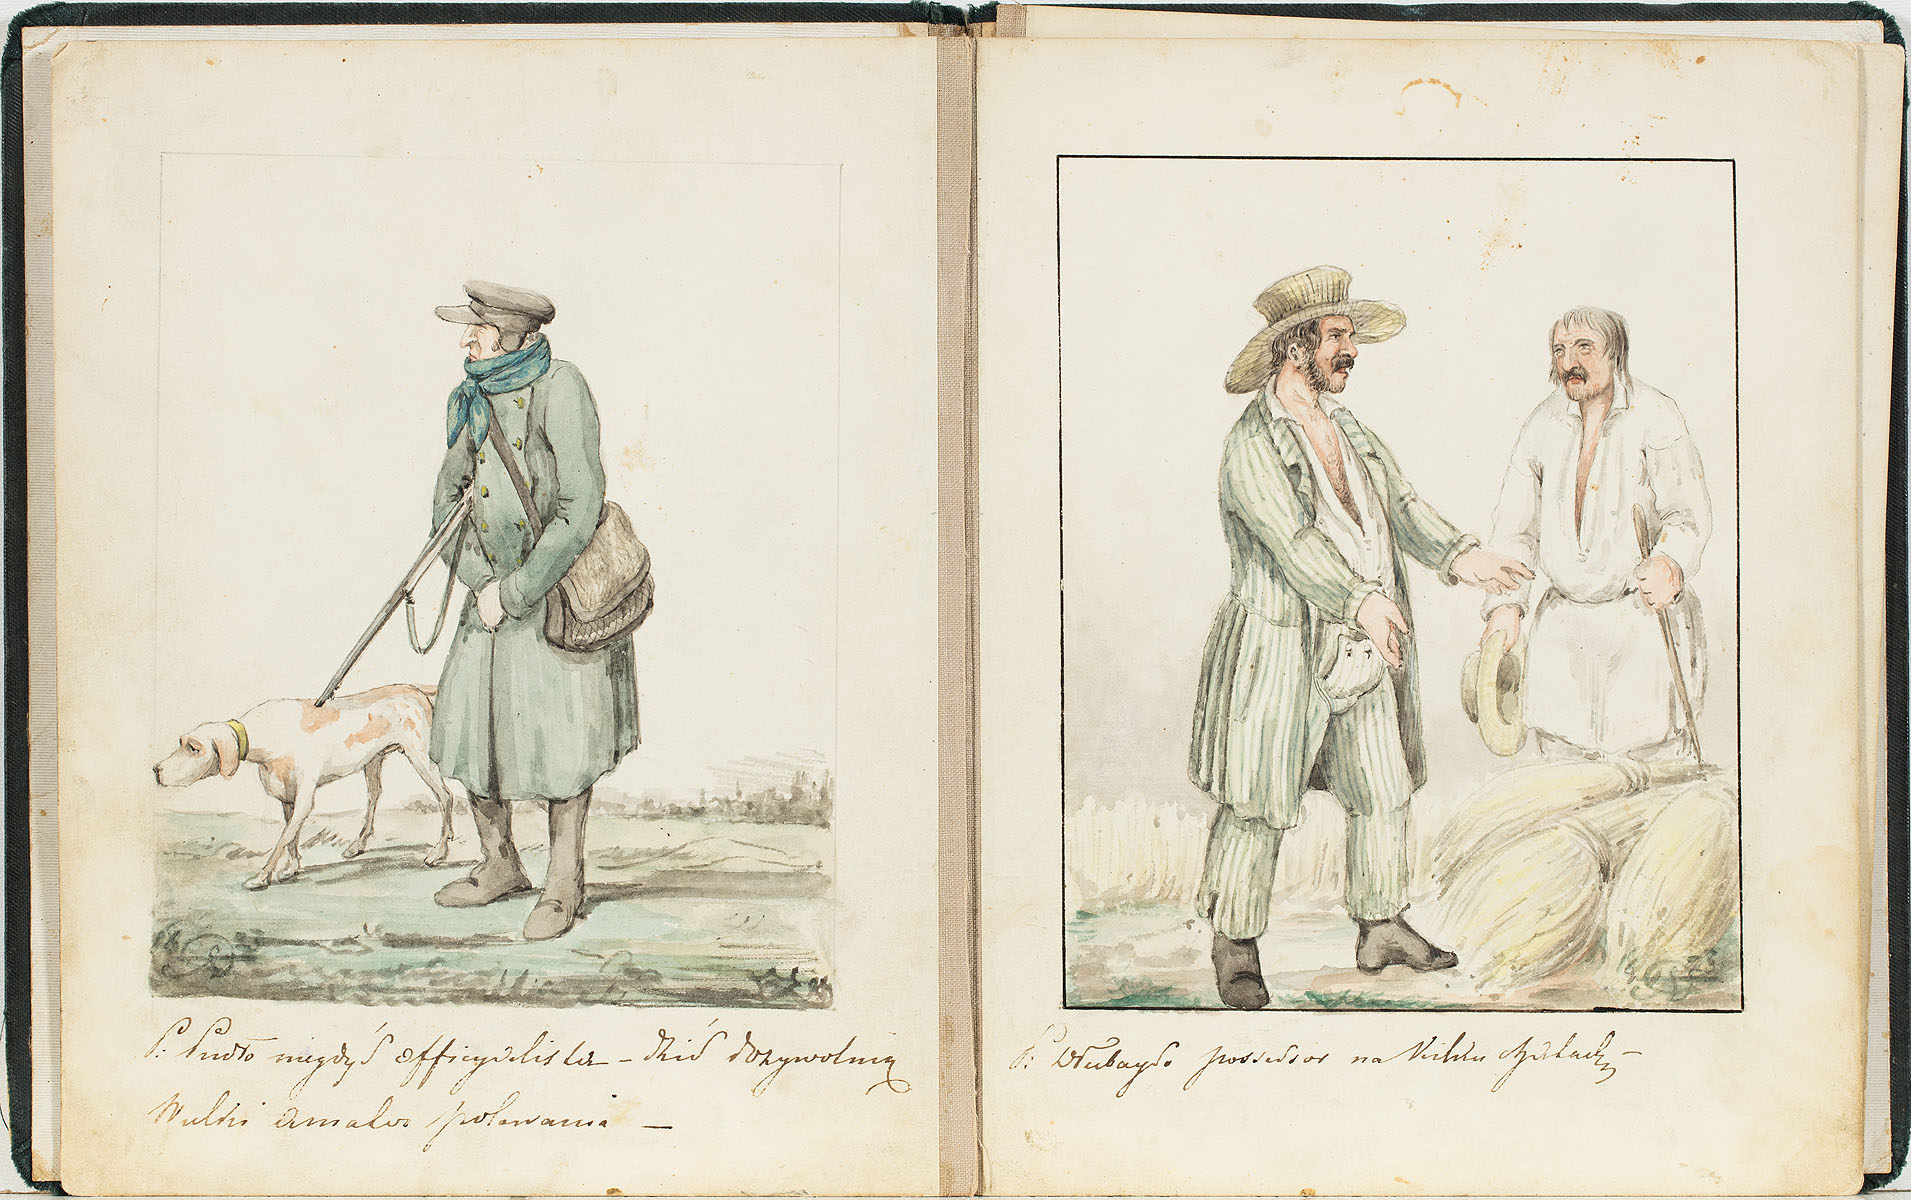 P: Pudło niegdyś officyalista – dziś dozywotnik
Wielki amator polowania –
18 23
P: Dłubaylo possessor na kilku chatach –
18 23